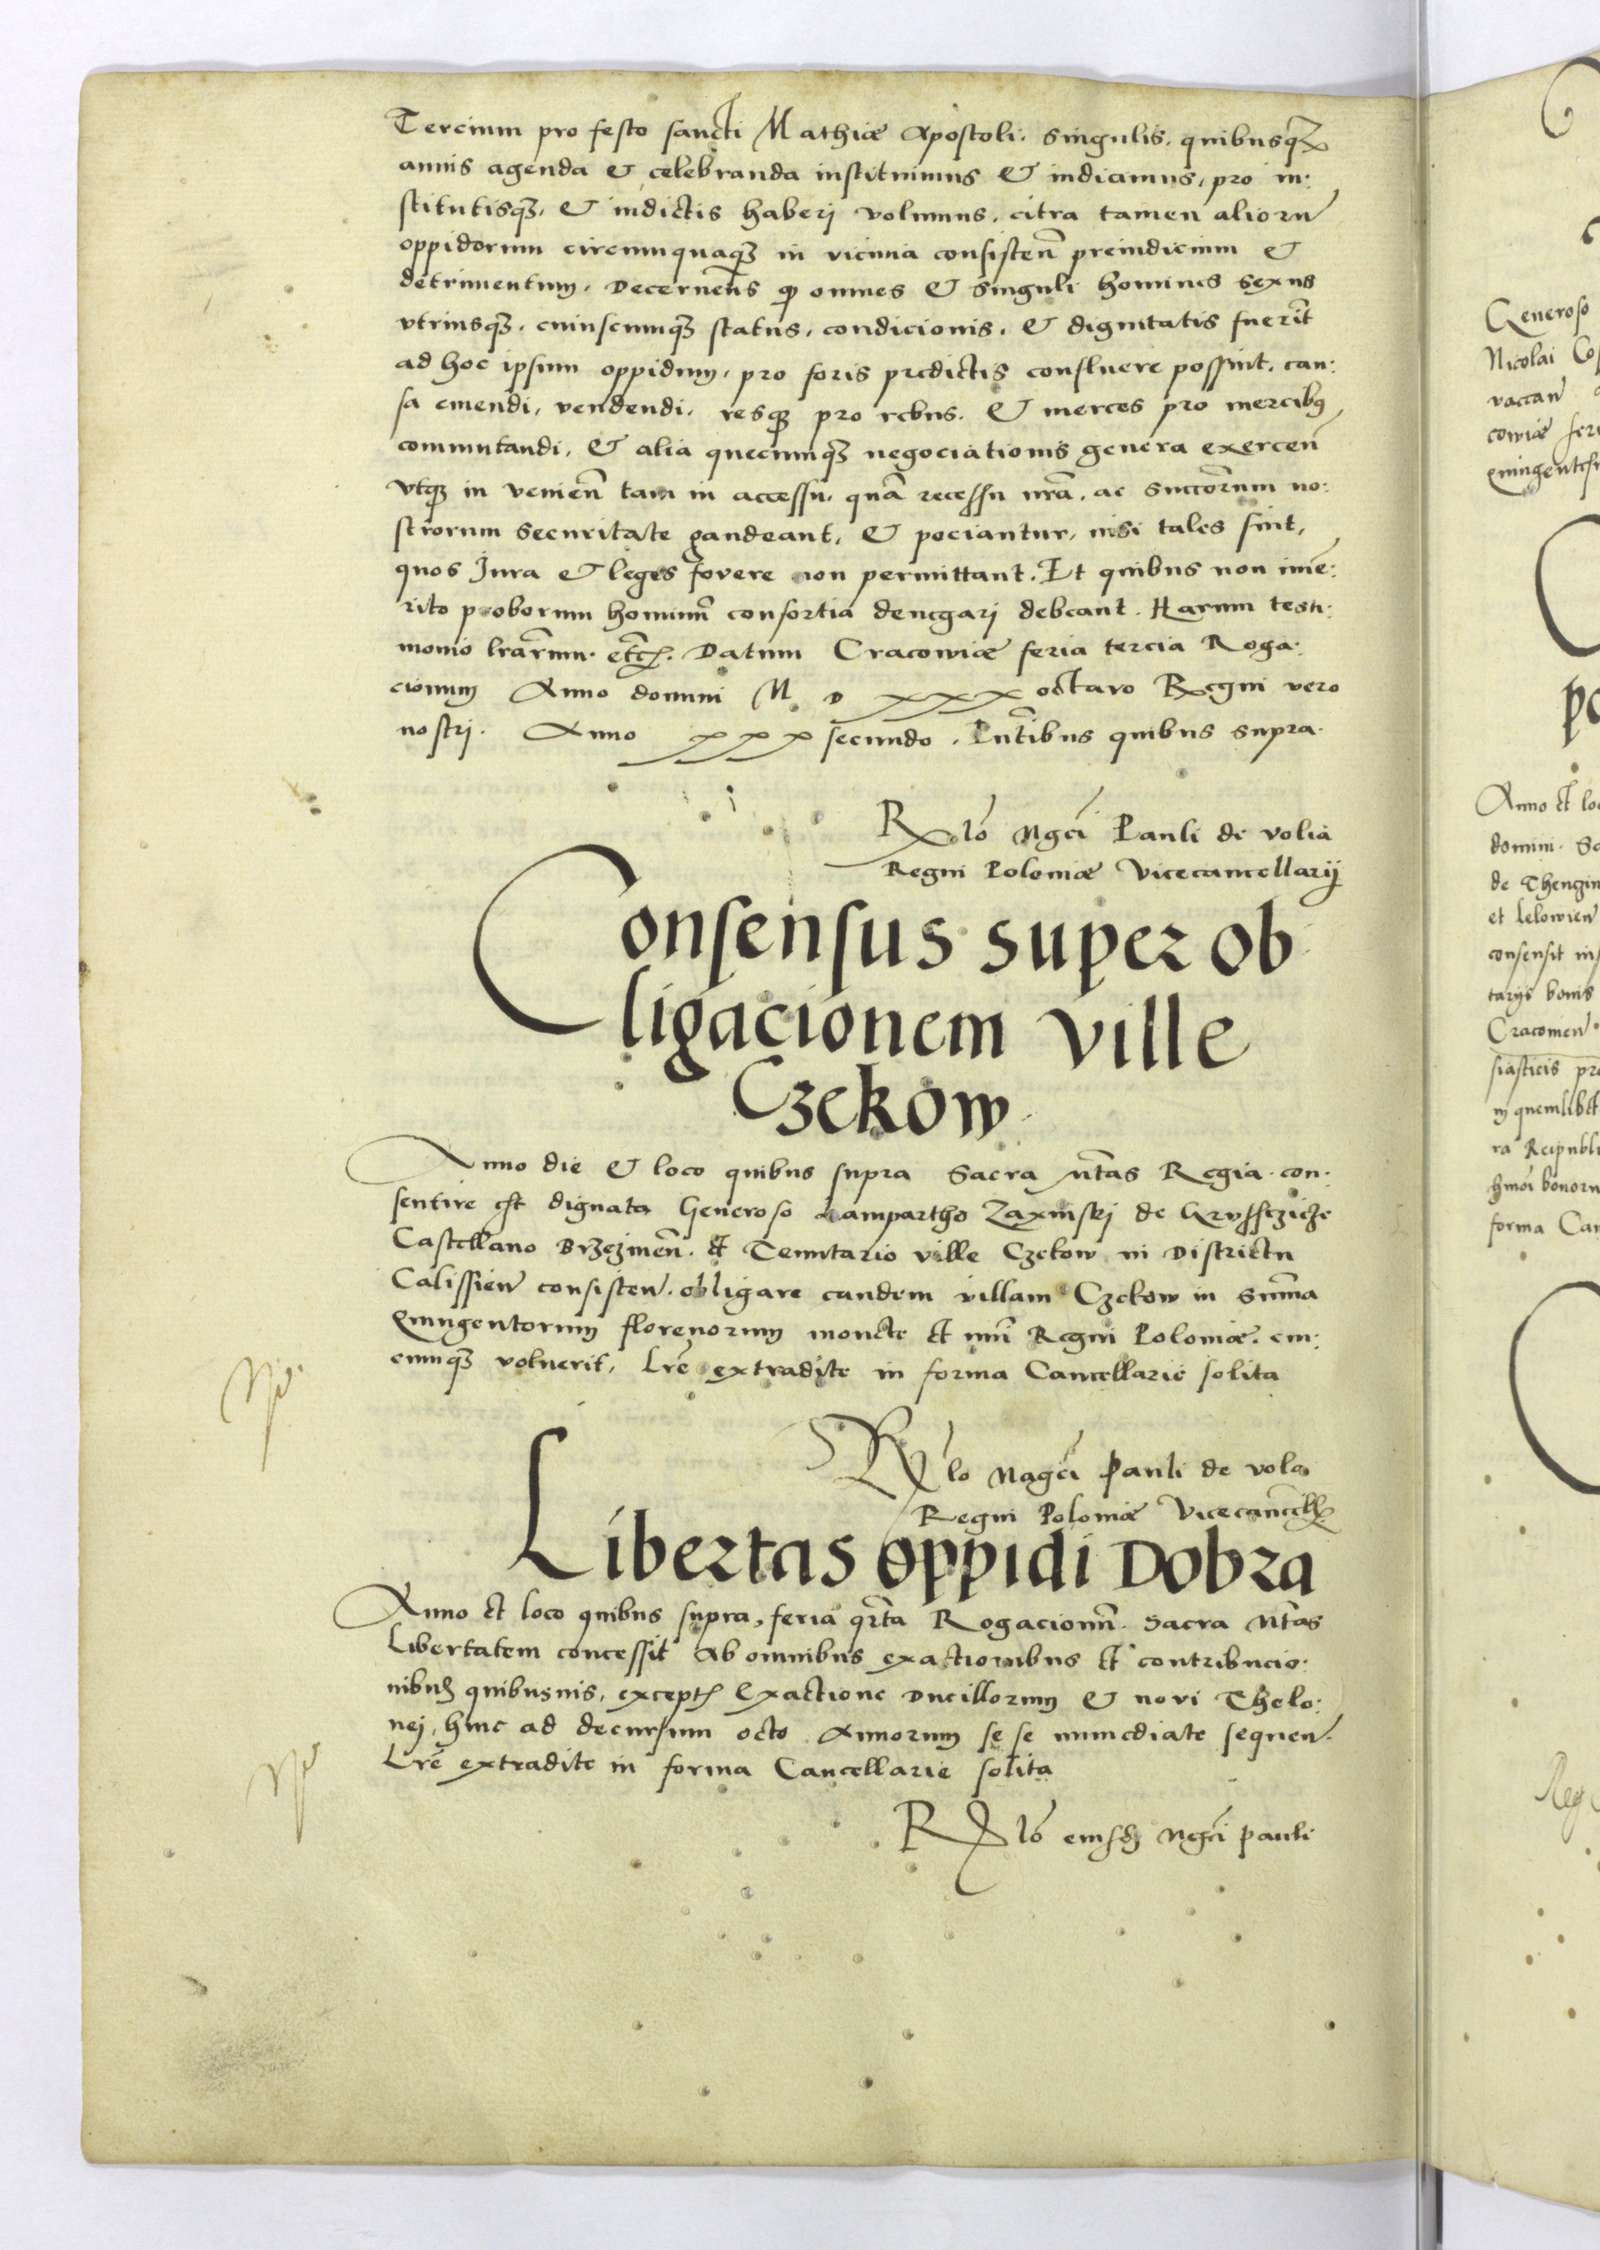 Tercium pro festo sancti Mathiæ Apostoli. singulis. quibusqʒ
annis agenda & celebranda instituimus & indicimus, pro in:
stitutisqʒ, & indictis haberj volumus, citra tamen aliorũ
oppidorum circumquaqʒ in vicinia consisteñ preiudicium &
detrimentum, Decerneñs qꝫ omnes & singuli homines sexus
vtriusqʒ, cuiuscumqʒ status, condicionis, & dignitatis fueriñt
ad hoc ipsum oppidum, pro foris predictis confluere possint, cau:
sa emendi, vendendi, resqʒ pro rebus, & merces pro mercibꝰ
commutandi, & alia quecumqʒ negociationis genera exerceñ
vtqʒ in venieñ tam in accessu, quã recessu nrã, ac succorum no:
strorum securitate gaudeant, & pociantur, nisi tales sint,
quos Jura & leges fovere non permittant. Et quibus non imẽ:
rito proborum hominũ consortia denegarj debeant. Harum testi:
monio lrãrum. etc̃. Datum Cracowiæ feria tercia Roga:
cionum Anno domini M D xxx octavo Regni vero
nostrj. Anno xxx secundo. Pñtibus quibus supra.
Rlõ Mgcĩ Pauli de volia
Regni Poloniæ Vicecancellarij
Consensus super ob
ligacionem ville
Czekow
Anno die & loco quibus supra Sacra Mtãs Regia con:
sentire est dignata Generoso Lampartho Zaxinskj de
Castellano Brzezineñ. et Tenutario ville Czekow in Districtu
Calissieñ consisteñ. obligare eandem villam Czekow in Sum̃a
Quingentorum florenorum monete et nuĩ Regni Poloniæ. cui:
cumqʒ voluerit, Lrẽ extradite in forma Cancellarie solita
Rlo Magcĩ Pauli de vola
Regni Poloniæ Vicecancell
Libertas oppidi Dobra
Anno et loco quibus supra, feria qrtã Rogacionũ. Sacra Mtãs
Libertatem concessit Ab omnibus exactionibus et contribucio:
nibus quibusuis, except Exactione Ducillorum & novi Thelo:
nej, hinc ad decursum octo Annorum se se immediate sequeñ.
Lrẽ extradite in forma Cancellarie solita
Rlõ eiusdẽ Mgcĩ Pauli
Generoso
Nicolai
vaccañ
cowiæ
quingentes
Anno et lo
domini. Sa
de Thengin
et lelowieñ
consensit ins
tarijs bonis
Cracovieñ
siasticis
quemlibet
ra Reipubli
hmõi bonoru
forma Can
Reg